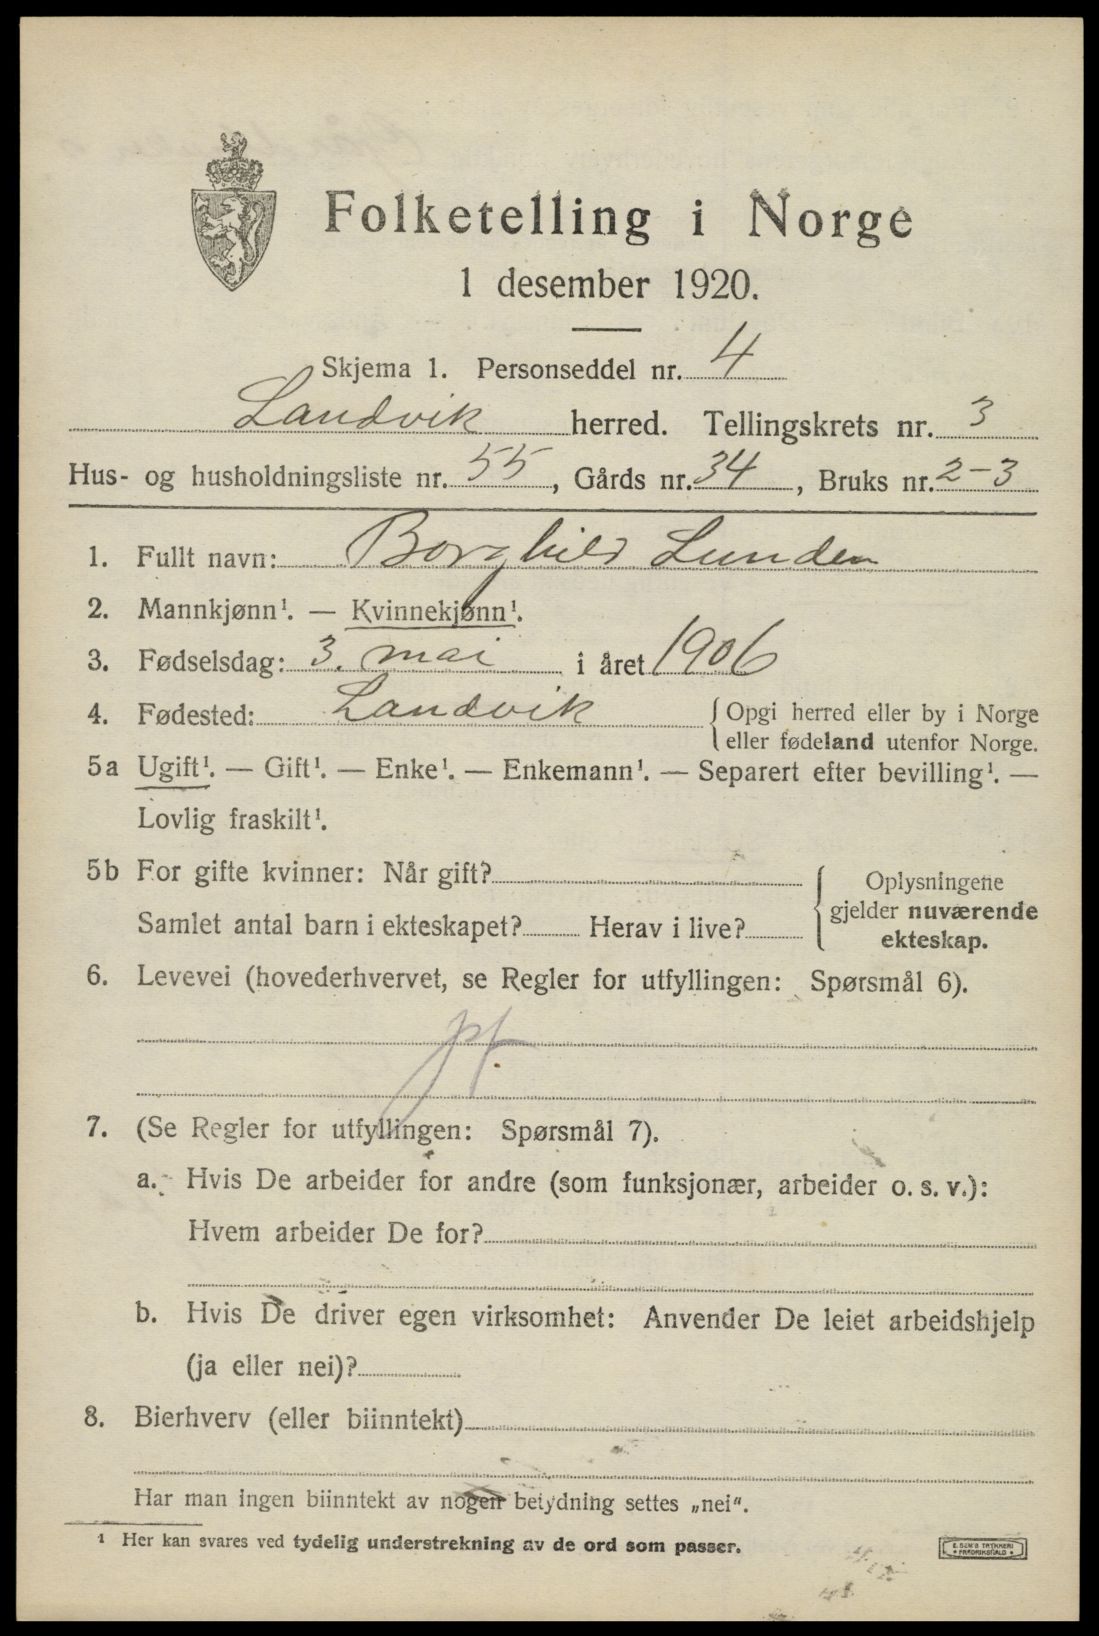 Folketelling i Norge
1 desember 1920.
Skjema 1. Personseddel nr. 4
Landvik herred. Tellingskrets nr. 3
Hus- og husholdningsliste nr. 55, Gårds nr. 34, Bruks nr. 2-3
1. Fullt navn: Borghild Lunden
2. Mannkjønn¹. — Kvinnekjønn¹.
3. Fødselsdag: 3. mai i året 1906
4. Fødested: Landvik { Opgi herred eller by i Norge
eller fødeland utenfor Norge.
5a Ugift¹. — Gift¹. — Enke¹. — Enkemann¹. — Separert efter bevilling¹. —
Lovlig fraskilt¹.
5b For gifte kvinner: Når gift?
Samlet antal barn i ekteskapet? Herav i live?
{ Oplysningene
gjelder nuværende
ekteskap.
6. Levevei (hovederhvervet, se Regler for utfyllingen: Spørsmål 6).
7. (Se Regler for utfyllingen: Spørsmål 7).
a. Hvis De arbeider for andre (som funksjonær, arbeider o. s. v.):
Hvem arbeider De for?
b. Hvis De driver egen virksomhet: Anvender De leiet arbeidshjelp
(ja eller nei)?
8. Bierhverv (eller biinntekt)
Har man ingen biinntekt av nogen betydning settes „nei“.
¹ Her kan svares ved tydelig understrekning av de ord som passer.